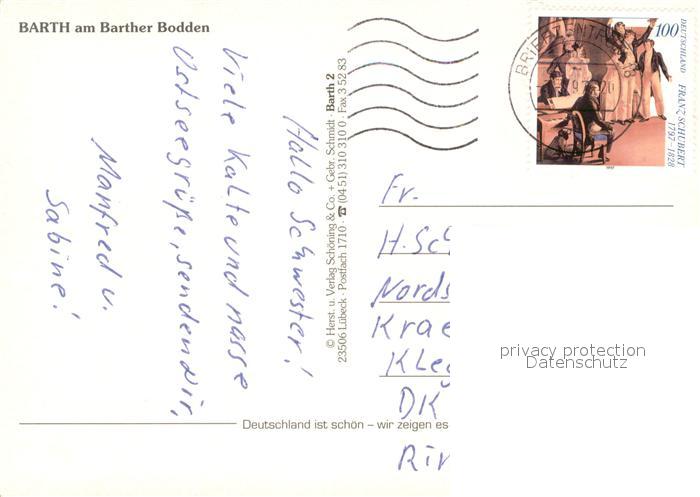 BARTH am Barther Bodden
Hallo Schwester!
Viele Kalte und nasse
Ostseegrüße, senden dir,
Manfred u.
Sabine!
© Herst. u. Verlag Schöning & Co. + Gebr. Schmidt · Barth 2
23506 Lübeck · Postfach 1710 · ☎ (04 51) 310 310 0 · Fax 3 52 83
100
DEUTSCHLAND
FRANZ SCHUBERT
1797–1828
1997
Fr.
H. Sc
Nords
Krae
Kle
DK
Rin
privacy protection
Datenschutz
Deutschland ist schön – wir zeigen es